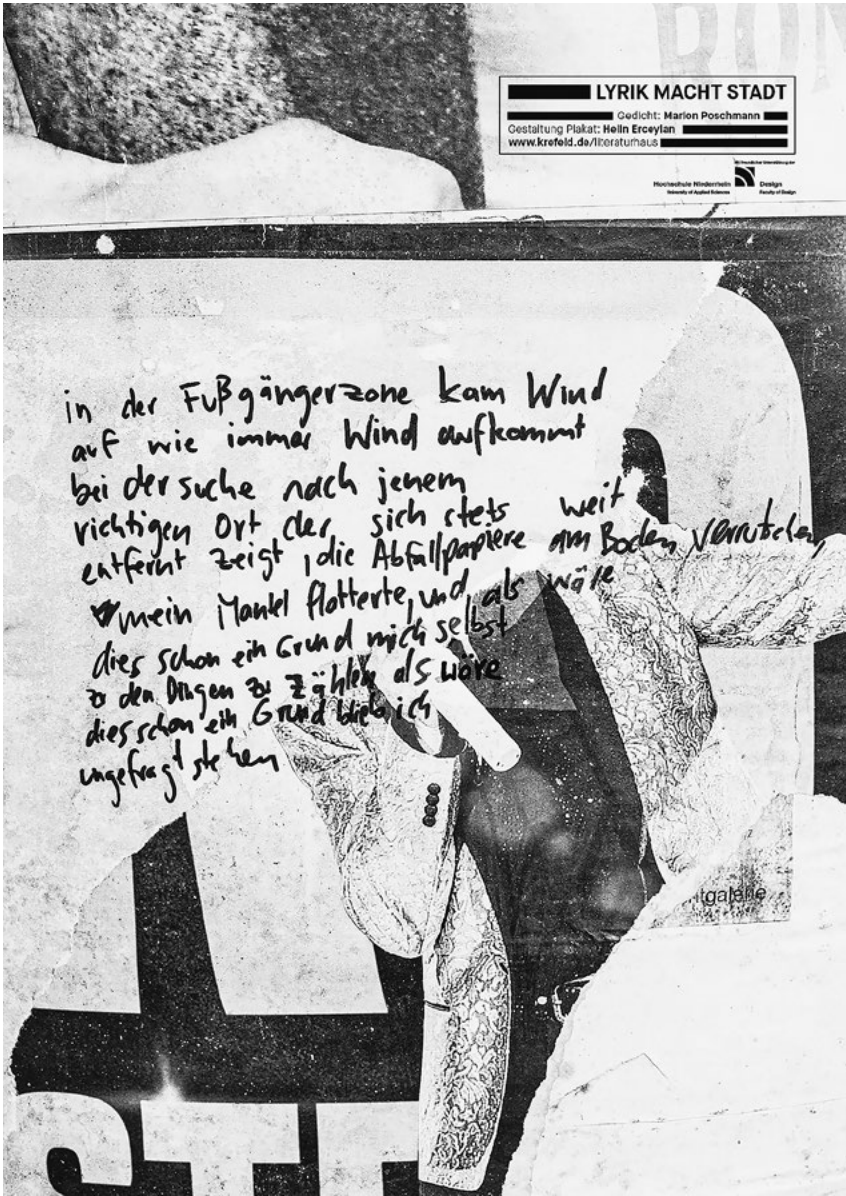 RON
LYRIK MACHT STADT
Gedicht: Marion Poschmann
Gestaltung Plakat: Helin Erceylan
www.krefeld.de/literaturhaus
Mit freundlicher Unterstützung der
Hochschule Niederrhein
University of Applied Sciences
Design
Faculty of Design
in der Fußgängerzone kam Wind
auf wie immer Wind aufkommt
bei der suche nach jenem
richtigen Ort der sich stets weit
entfernt zeigt, die Abfallpapiere am Boden verrutschen,
mein Mantel flatterte, und als wäre
dies schon ein Grund mich selbst
zu den Dingen zu zählen als wäre
dies schon ein Grund blieb ich
ungefragt stehen
itgalerie
STE